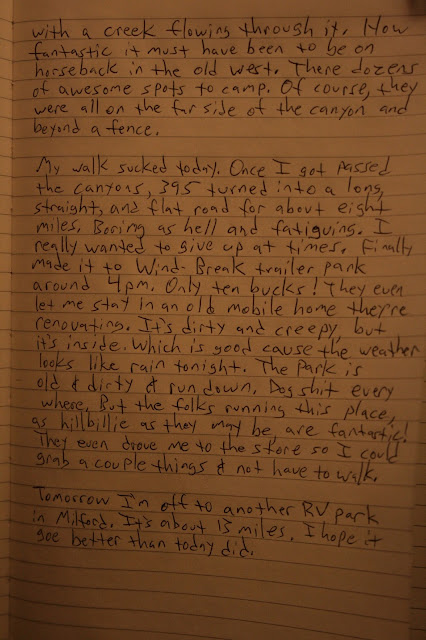 with a creek flowing through it. How
fantastic it must have been to be on
horseback in the old west. There dozens
of awesome spots to camp. Of course, they
were all on the far side of the canyon and
beyond a fence.
My walk sucked today. Once I got passed
the canyons, 395 turned into a long,
straight, and flat road for about eight
miles. Boring as hell and fatiguing. I
really wanted to give up at times. Finally
made it to Wind-Break trailer park
around 4pm. Only ten bucks! They even
let me stay in an old mobile home they're
renovating. It's dirty and creepy, but
it's inside. Which is good cause the weather
looks like rain tonight. The Park is
old & dirty & run down. Dog shit every
where. But the folks running this place,
as hillbillie as they may be, are fantastic!
They even drove me to the store so I could
grab a couple things & not have to walk.
Tomorrow I'm off to another RV park
in Milford. It's about 13 miles. I hope it
goe better than today did.